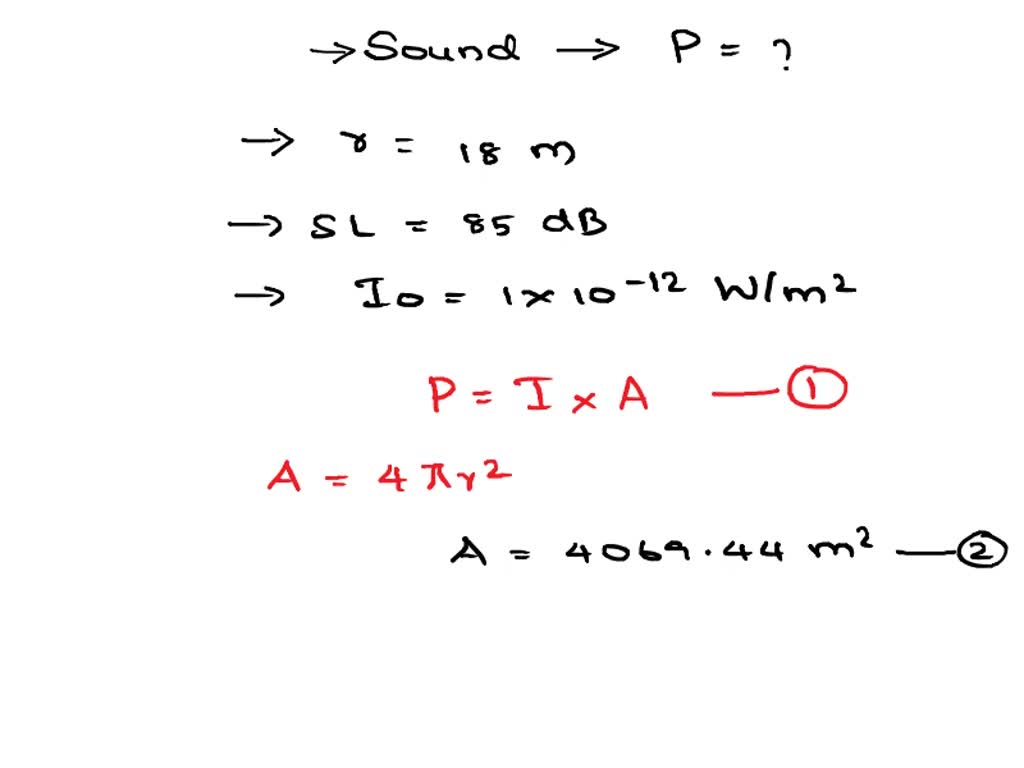 → Sound → P = ?
→ r = 18 m
→ SL = 85 dB
→ I0 = 1 × 10-12 W/m2
P = I × A — ①
A = 4πr2
A = 4069.44 m2 — ②